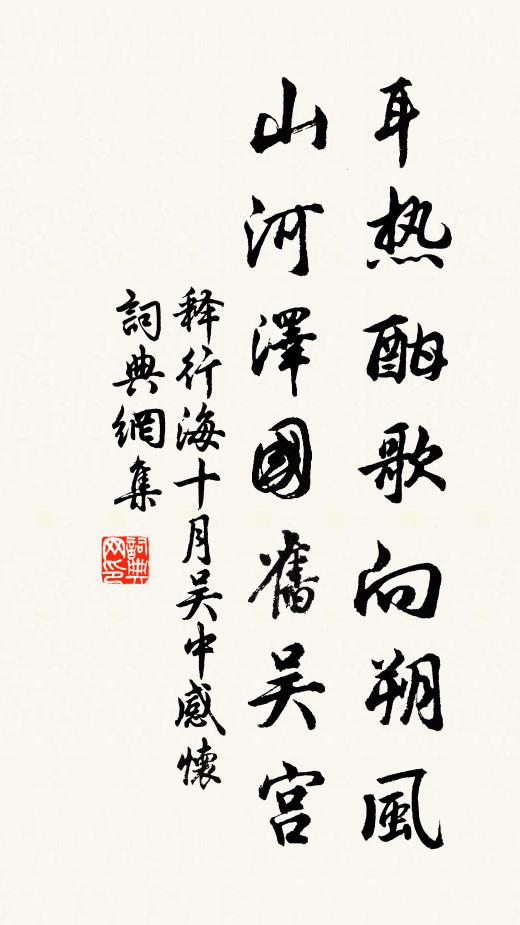 耳热酣歌向朔風
山河澤國舊吴宫
释行海十月吴中感懷
詞典網集
詞典網印